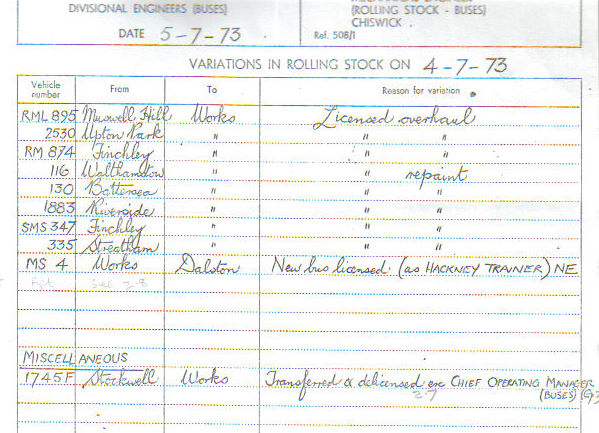 DIVISIONAL ENGINEERS (BUSES)
(ROLLING STOCK - BUSES)
CHISWICK .
DATE 5-7-73
Ref. 508/1
VARIATIONS IN ROLLING STOCK ON 4-7-73
Vehicle number From To Reason for variation
RML 895 Muswell Hill Works Licensed overhaul
2530 Upton Park " " "
RM 874 Finchley " " "
116 Walthamstow " " repaint
130 Battersea " " "
1883 Riverside " " "
SMS 347 Finchley " " "
335 Streatham " " "
MS 4 Works Dalston New bus licensed (as HACKNEY TRAINER) NE
MISCELLANEOUS
1745F Stockwell Works Transferred & delicensed exc CHIEF OPERATING MANAGER
2.7 (BUSES)